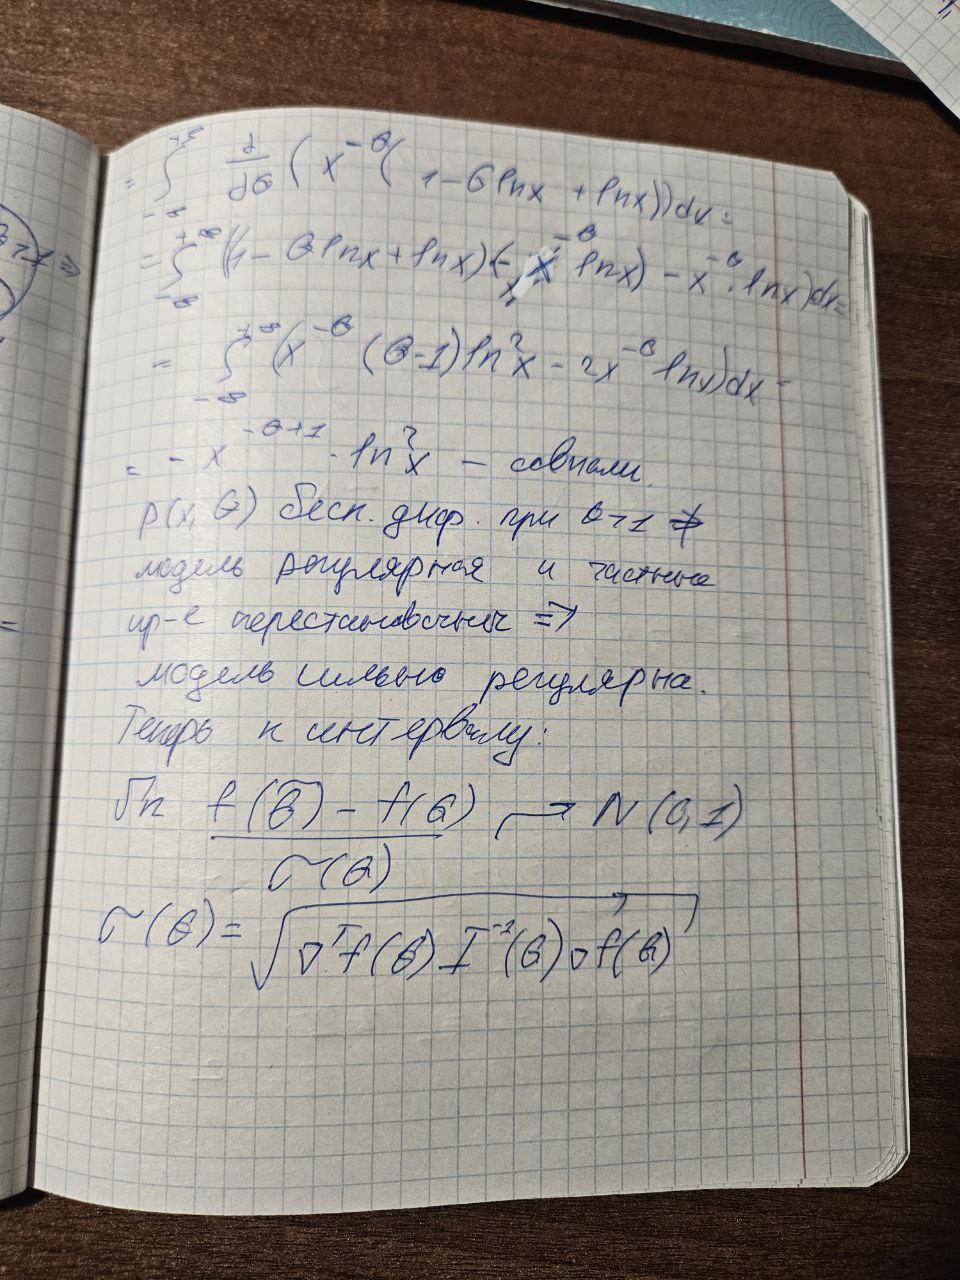 = ∫_{-∞}^{+∞} d/dθ (x^{-θ}(1-θlnx + lnx))dx =
= ∫_{-∞}^{+∞} ((1-θlnx+lnx)(-x^{-θ} lnx) - x^{-θ}·lnx)dx =
= ∫_{-∞}^{+∞} (x^{-θ} (θ-1)ln²x - 2x^{-θ} lnx)dx =
= - x^{-θ+1} · ln²x — совпали.
p(x, θ) беск. диф. при θ>1 ⇒
модель регулярная и частные
пр-е перестановочные ⇒
модель сильно регулярна.
Теперь к интервалу:
√n (f(θ̃) - f(θ))/σ(θ) → N(0,1)
σ(θ) = √(∇ᵀf(θ) I⁻¹(θ) ∇f(θ))